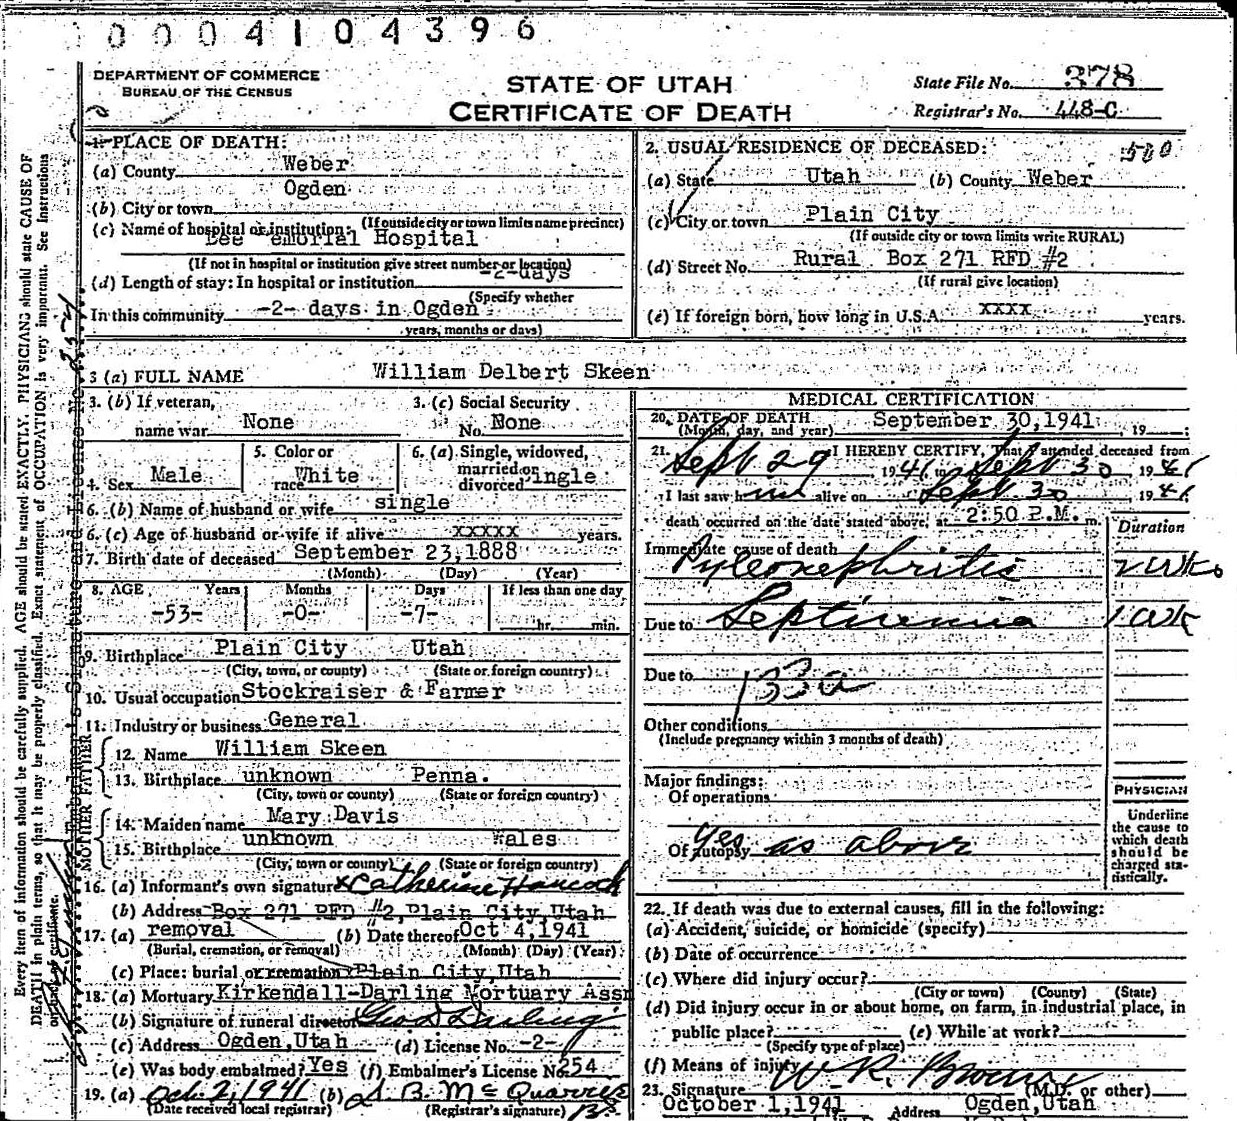 0004104396
DEPARTMENT OF COMMERCE
BUREAU OF THE CENSUS
STATE OF UTAH
CERTIFICATE OF DEATH
State File No. 378
Registrar's No. 448-C
1. PLACE OF DEATH:
(a) County Weber
Ogden
(b) City or town
(If outside city or town limits name precinct)
(c) Name of hospital or institution:
Dee emorial Hospital
(If not in hospital or institution give street number or location)
(d) Length of stay: In hospital or institution -2-days
(Specify whether
In this community -2- days in Ogden
years, months or days)
2. USUAL RESIDENCE OF DECEASED: 500
(a) State Utah (b) County Weber
(c) City or town Plain City
(If outside city or town limits write RURAL)
(d) Street No. Rural Box 271 RFD #2
(If rural give location)
(e) If foreign born, how long in U.S.A. xxxx years.
3 (a) FULL NAME William Delbert Skeen
3. (b) If veteran, name war None
3. (c) Social Security No. None
4. Sex Male
5. Color or race White
6. (a) Single, widowed, married or divorced ingle
6. (b) Name of husband or wife single
6. (c) Age of husband or wife if alive xxxxx years.
7. Birth date of deceased September 23,1888
(Month) (Day) (Year)
8. AGE Years Months Days If less than one day
-53- -0- -7- hr. min.
9. Birthplace Plain City Utah
(City, town, or county) (State or foreign country)
10. Usual occupation Stockraiser & Farmer
11. Industry or business General
FATHER
12. Name William Skeen
13. Birthplace unknown Penna.
(City, town or county) (State or foreign country)
MOTHER
14. Maiden name Mary Davis
15. Birthplace unknown Wales
(City, town or county) (State or foreign country)
16. (a) Informant's own signature x Catherine Hancock
(b) Address Box 271 RFD #2,Plain City,Utah
17. (a) removal (b) Date thereof Oct 4,1941
(Burial, cremation, or removal) (Month) (Day) (Year)
(c) Place: burial or cremation Plain City,Utah
18. (a) Mortuary Kirkendall-Darling Mortuary Assn
(b) Signature of funeral director Geo D Darling
(c) Address Ogden,Utah (d) License No. -2-
(e) Was body embalmed? Yes (f) Embalmer's License No. 254
19. (a) Oct. 2, 1941 (b) B. McQuarrie
(Date received local registrar) (Registrar's signature)
MEDICAL CERTIFICATION
20. DATE OF DEATH September 30,1941, 19
(Month, day, and year)
21. I HEREBY CERTIFY, That I attended deceased from
Sept 29 1941 to Sept 30 1941
I last saw him alive on Sept 30 1941
death occurred on the date stated above, at 2:50 P.M. m.
Duration
Immediate cause of death
Pyleonephritis 2 wks
Due to Septicemia 1 wk
Due to 133a
Other conditions
(Include pregnancy within 3 months of death)
Major findings:
Of operations
Of autopsy yes as above
PHYSICIAN
Underline
the cause to
which death
should be
charged sta-
tistically.
22. If death was due to external causes, fill in the following:
(a) Accident, suicide, or homicide (specify)
(b) Date of occurrence
(c) Where did injury occur?
(City or town) (County) (State)
(d) Did injury occur in or about home, on farm, in industrial place, in
public place? (e) While at work?
(Specify type of place)
(f) Means of injury
23. Signature W R Brown (M.D. or other)
October 1,1941 Address Ogden,Utah
Every item of information should be carefully supplied. AGE should be stated EXACTLY. PHYSICIANS should state CAUSE OF
DEATH in plain terms, so that it may be properly classified. Exact statement of OCCUPATION is very important. See Instructions
on back of certificate.